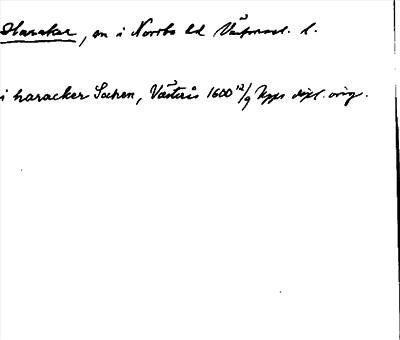 Haraker, sn i Norrbo hd Västmanl. l.
i haracker Sochen, Västerås 1600 12/9 Upps dipl. orig.